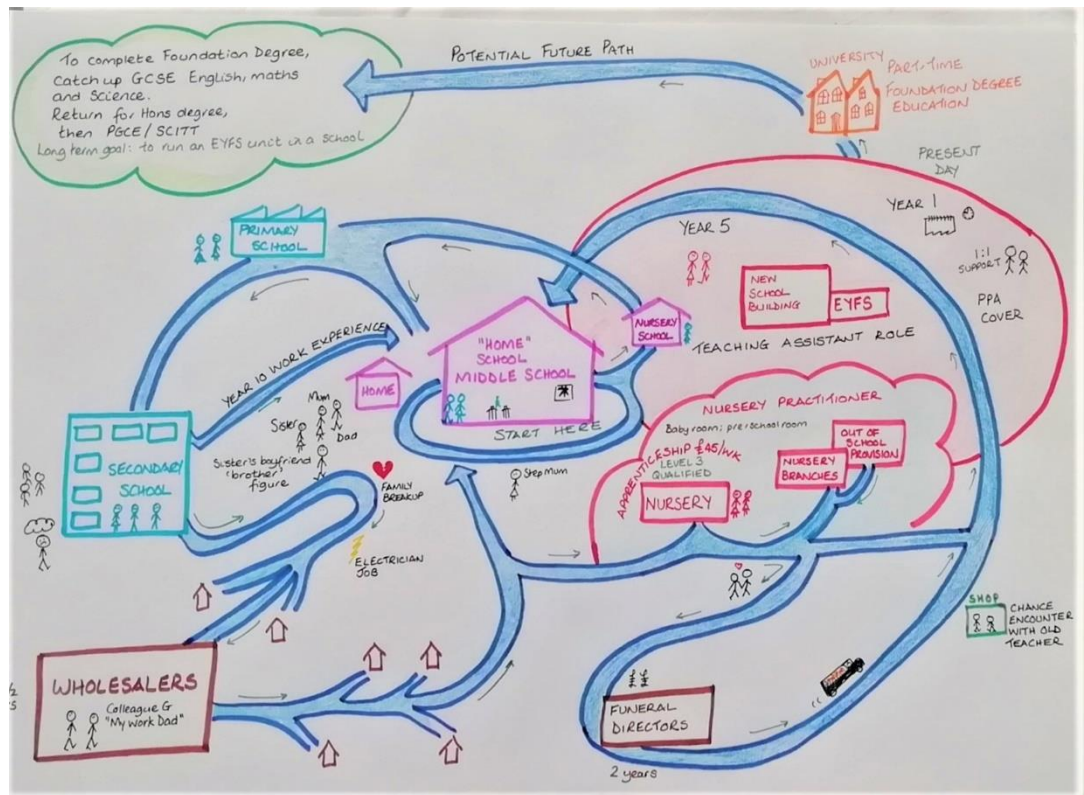 To complete Foundation Degree,
Catch up GCSE English, maths
and Science.
Return for Hons degree,
then PGCE/SCITT
Long term goal: to run an EYFS unit in a school
POTENTIAL FUTURE PATH
UNIVERSITY
PART-TIME
FOUNDATION DEGREE
EDUCATION
PRESENT
DAY
YEAR 1
1:1
SUPPORT
PPA
COVER
YEAR 5
NEW
SCHOOL
BUILDING
EYFS
TEACHING ASSISTANT ROLE
PRIMARY
SCHOOL
NURSERY
SCHOOL
"HOME"
SCHOOL
MIDDLE SCHOOL
START HERE
HOME
YEAR 10 WORK EXPERIENCE
SECONDARY
SCHOOL
Mum
Sister
Dad
Sister's boyfriend
'brother'
figure
FAMILY
BREAKUP
ELECTRICIAN
JOB
Step Mum
NURSERY PRACTITIONER
Baby room; pre school room
APPRENTICESHIP £45/WK
LEVEL 3
QUALIFIED
NURSERY
NURSERY
BRANCHES
OUT OF
SCHOOL
PROVISION
SHOP
CHANCE
ENCOUNTER
WITH OLD
TEACHER
WHOLESALERS
Colleague G
"My Work Dad"
FUNERAL
DIRECTORS
2 years